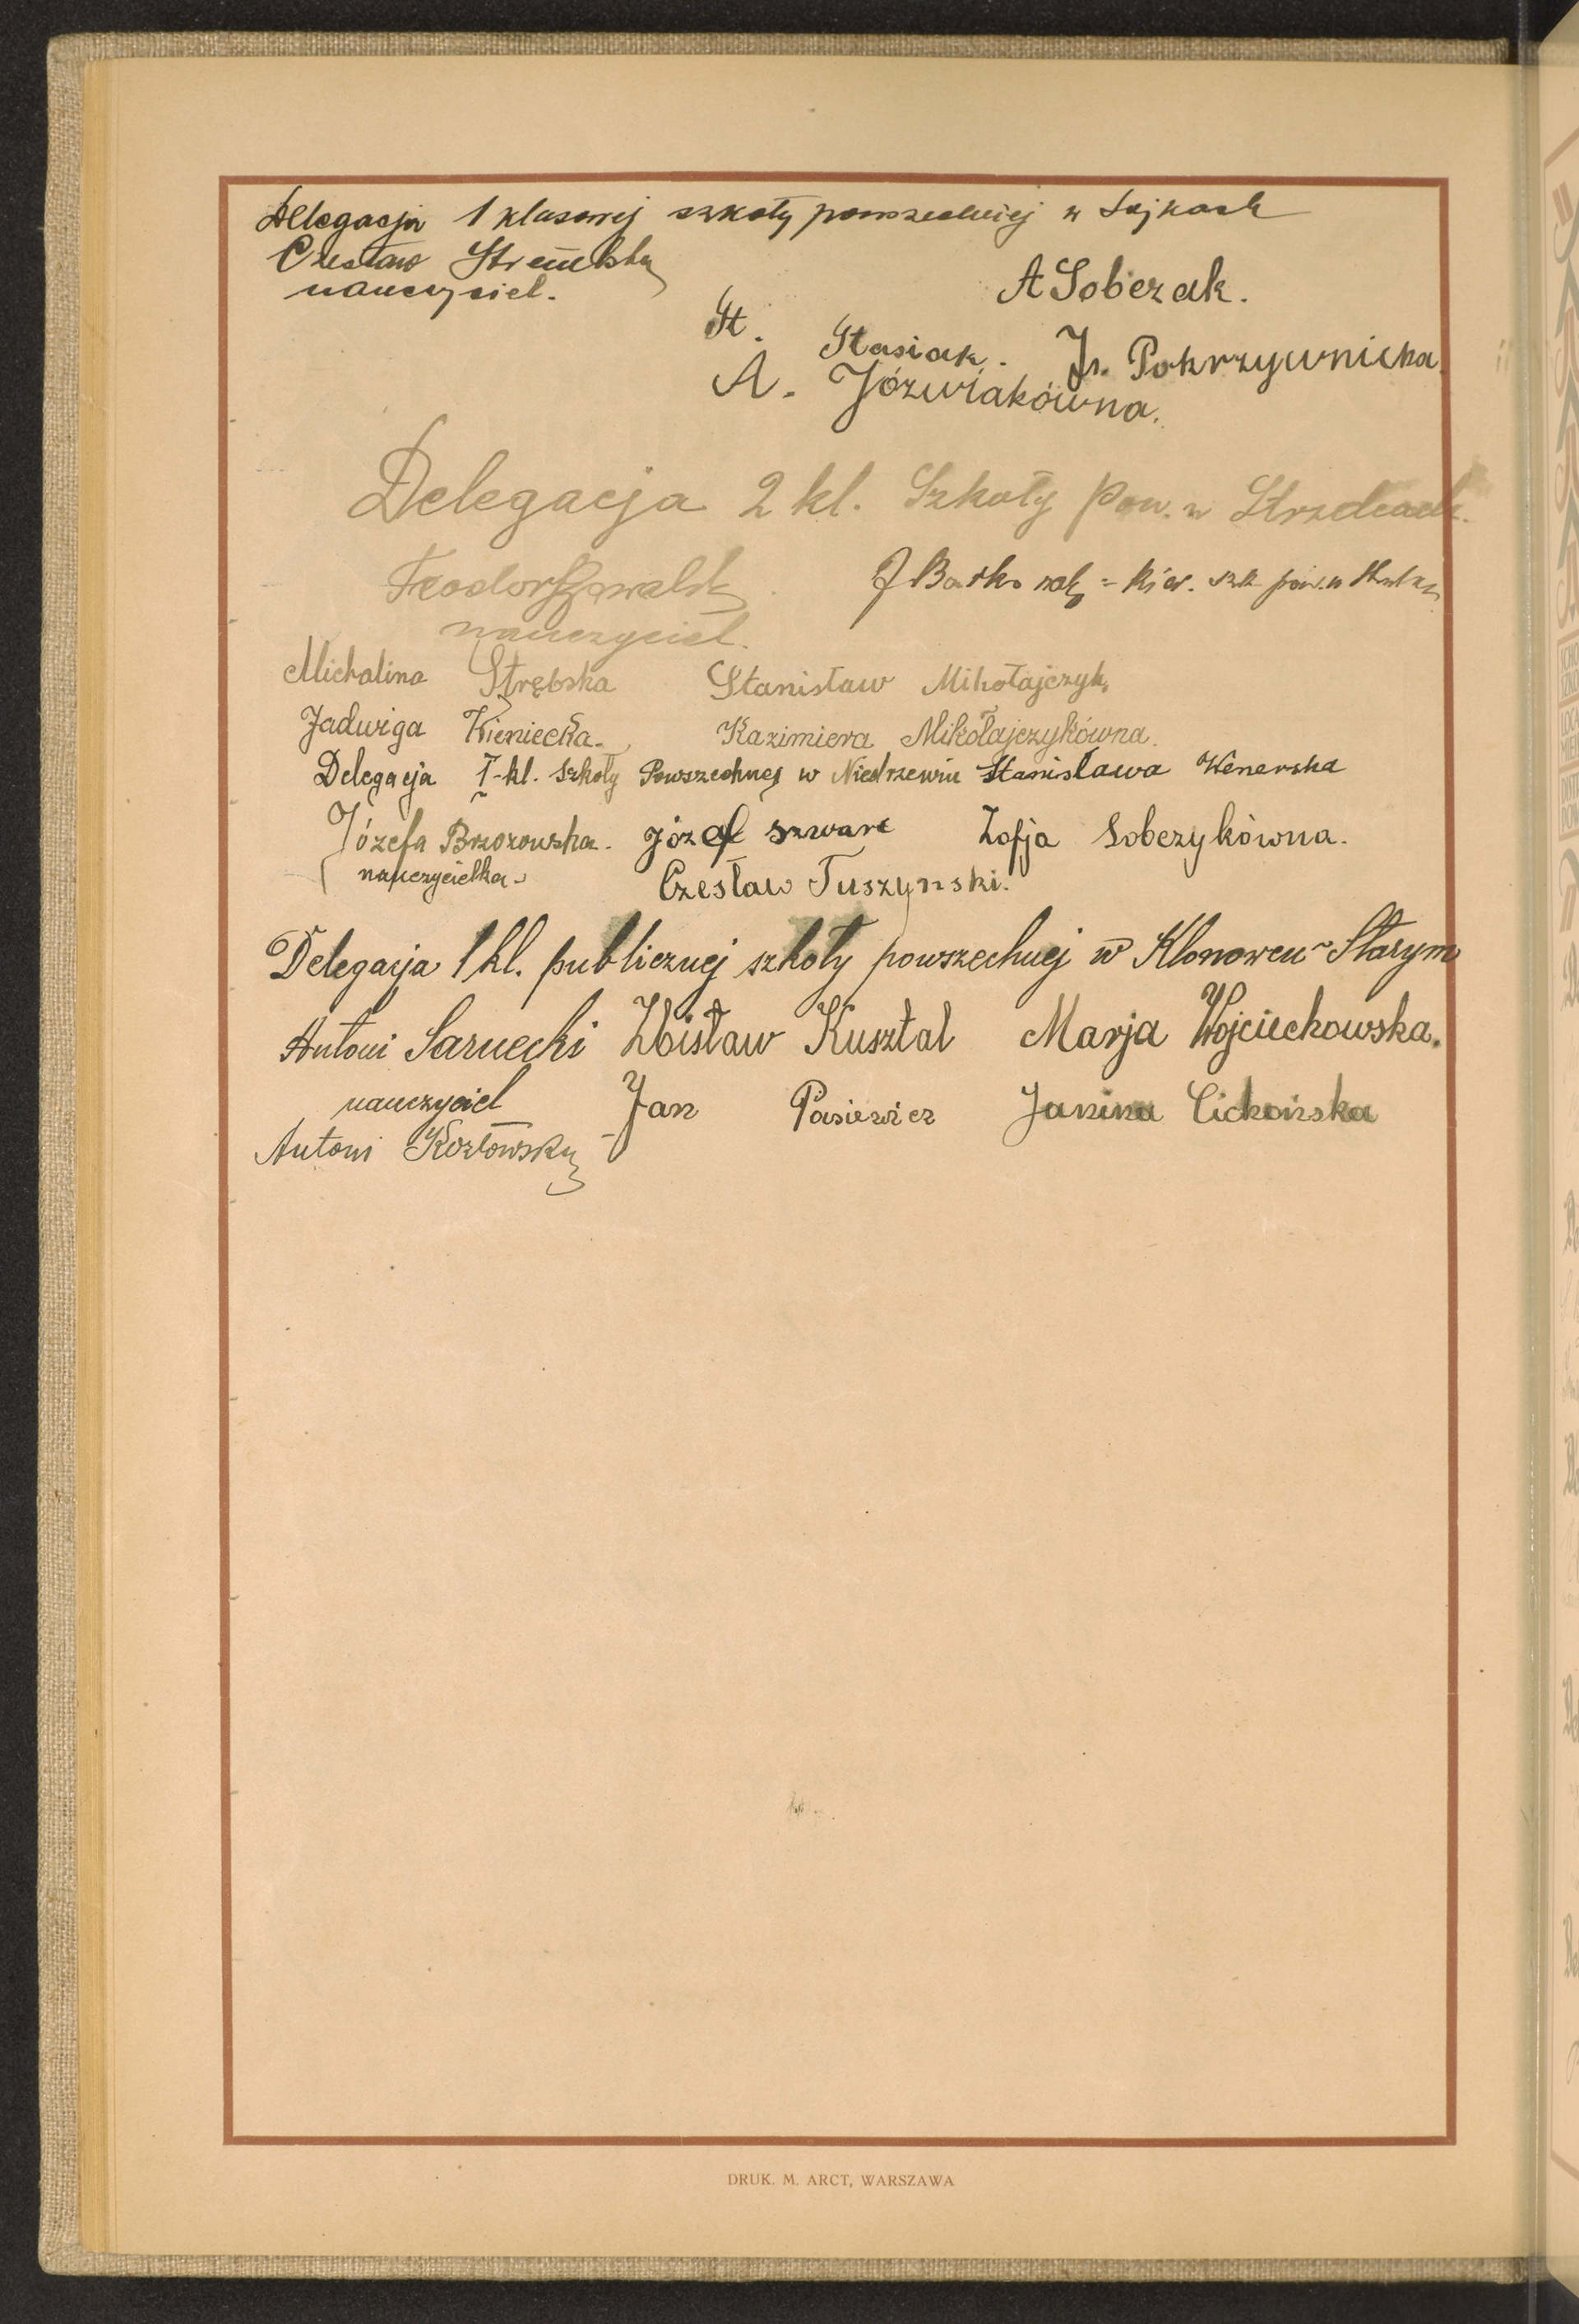 Delegacja 1 klasowej szkoły powszechnej w Sójkach
Czesław
nauczyciel.
A Sobczak.
St. Stasiak. Ir. Pokrzywnicka.
A. Józwiakówna.
Delegacja 2 kl. Szkoły Pow. w Strzelcach.
Teodor Kowalski
nauczyciel.
Kier. szk. pow. w
Michalina Strębska Stanisław Mikołajczyk.
Jadwiga Kieniecka. Kazimiera Mikołajczykówna.
Delegacja I-kl. Szkoły Powszechnej w Niedrzewiu Stanisława Wenerska
Józefa Brzozowska. Józef Szwarc Zofja Sobczykówna.
nauczycielka. Czesław Tuszynski.
Delegacja 1 kl. publicznej szkoły powszechnej w Klonowcu-Starym
Antoni Sarnecki Zbisław Kusztal Marja Wojciechowska.
nauczyciel Jan Pasiewicz Janina Cichońska
Antoni Kozłowski
DRUK. M. ARCT, WARSZAWA